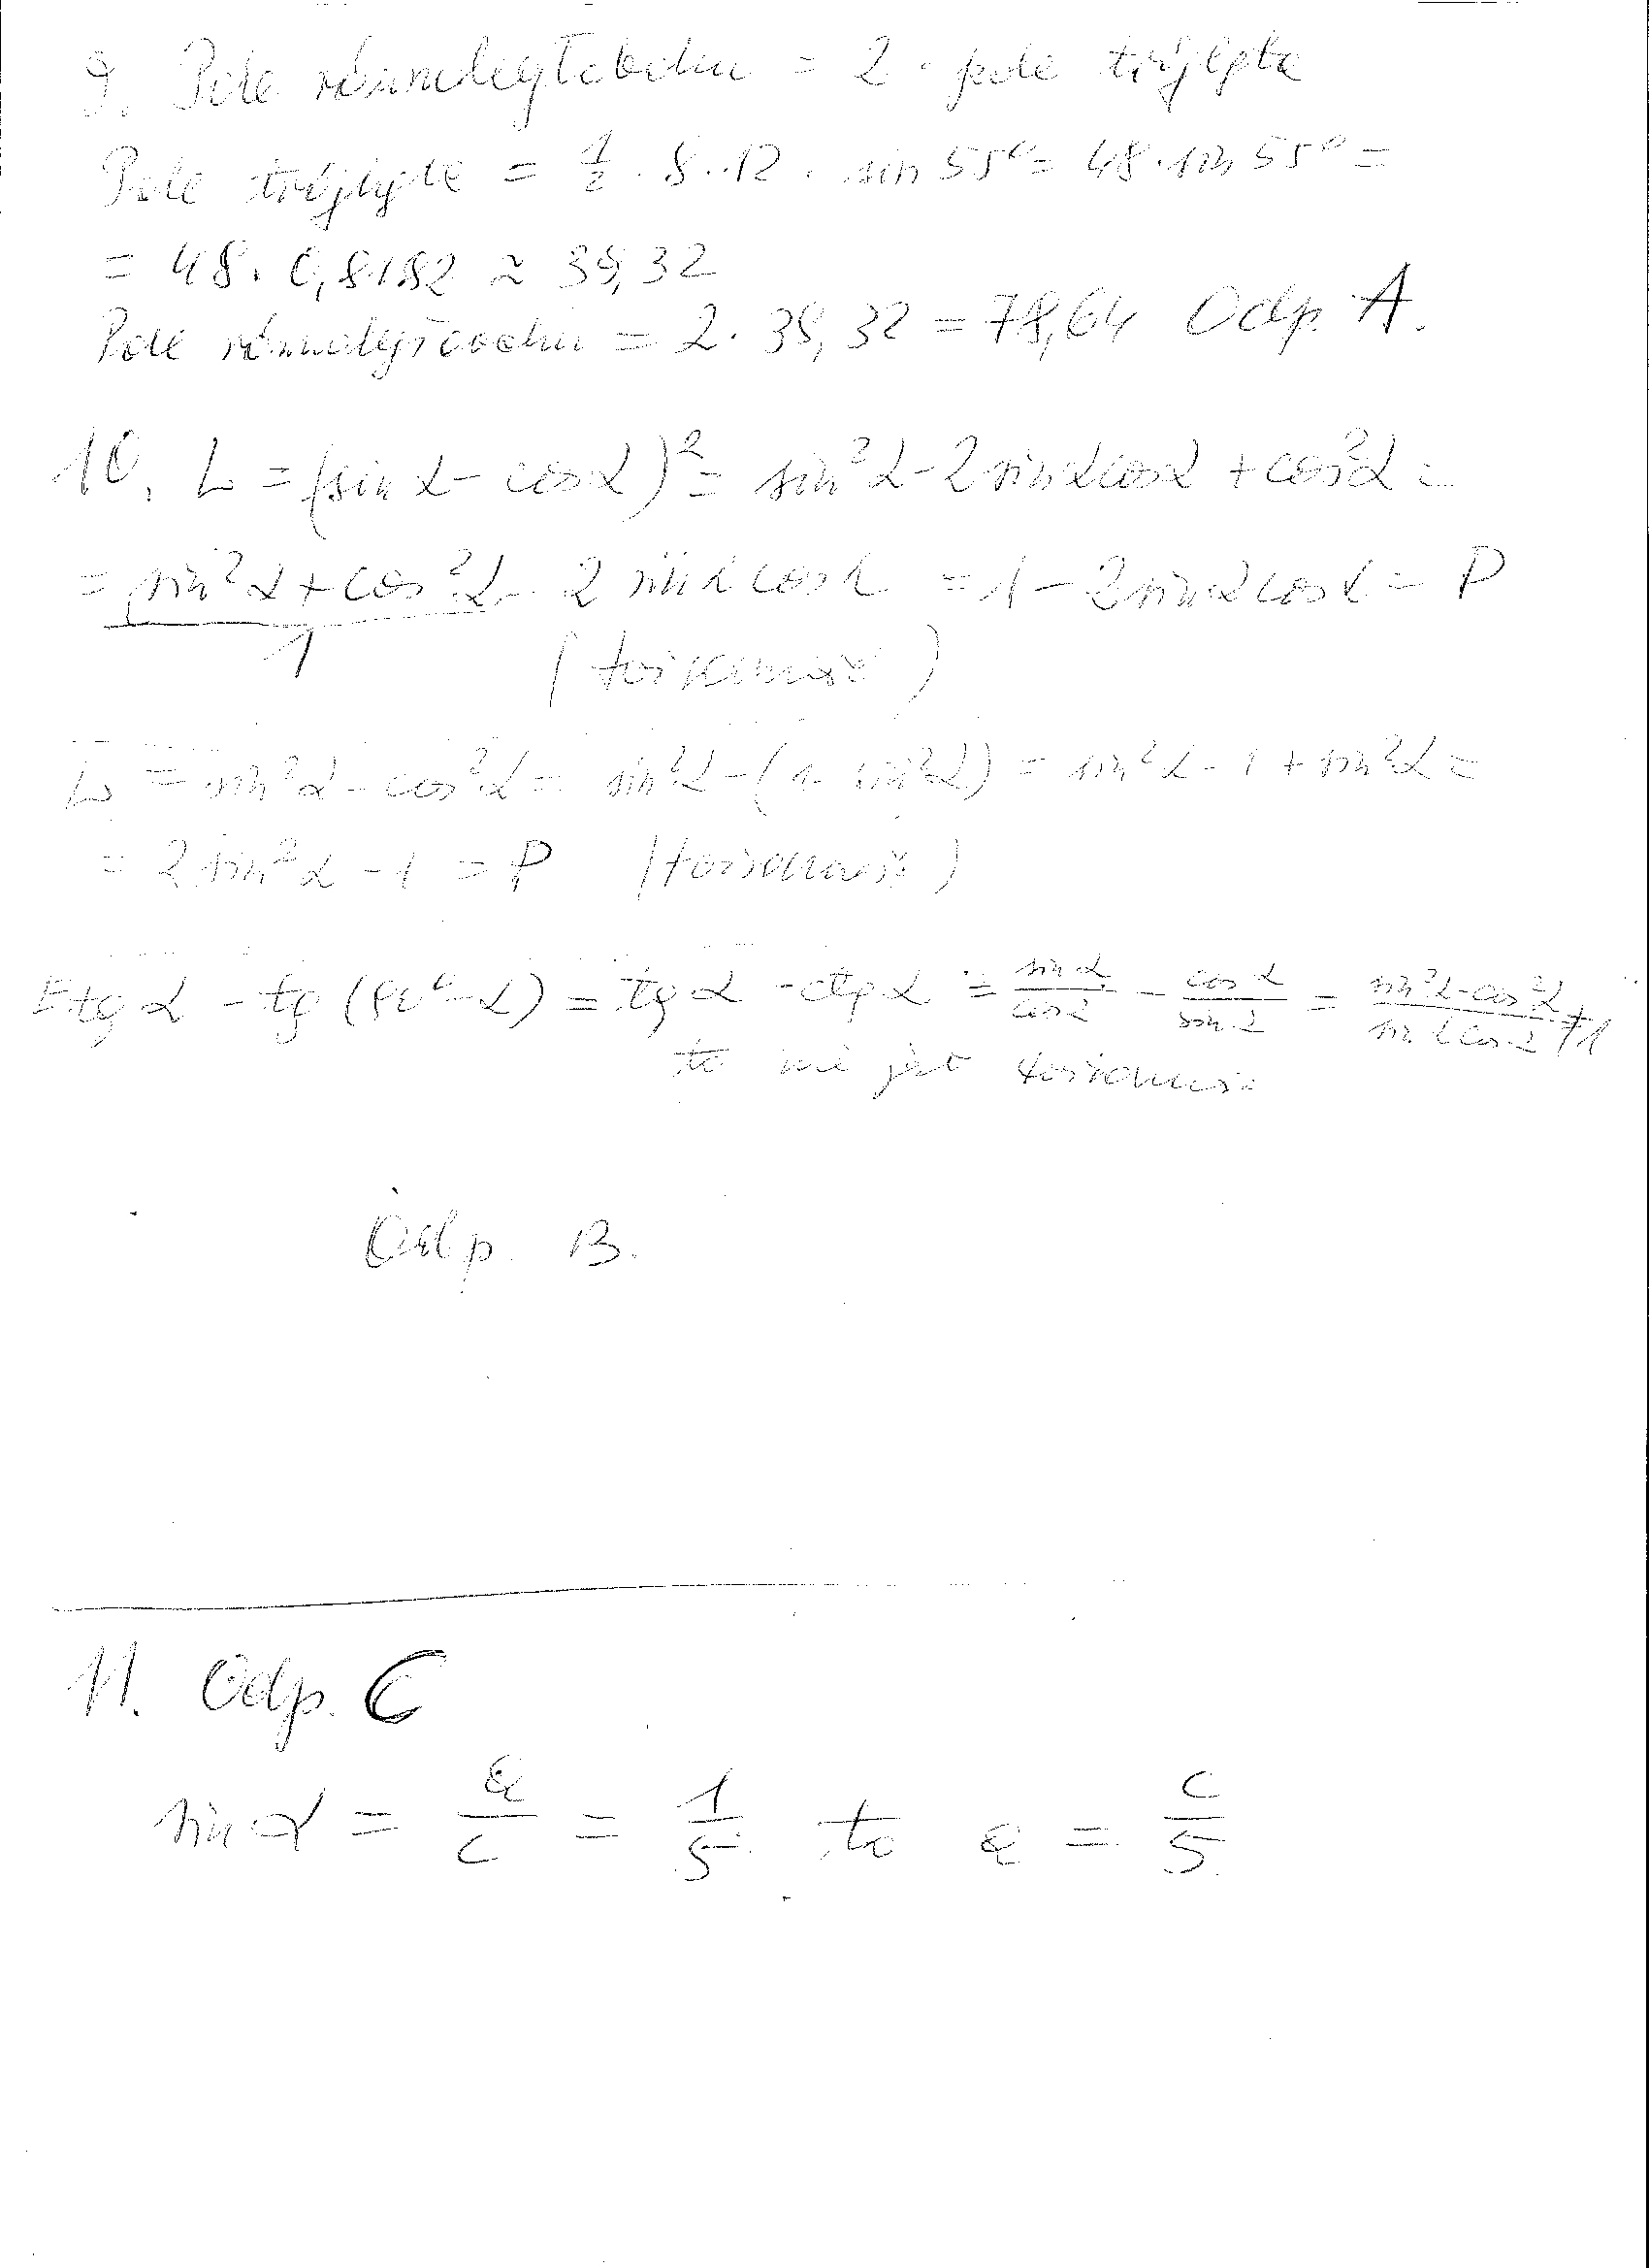 9. Pole równoległoboku = 2 · pole trójkąta
Pole trójkąta = 1/2 · 8 · 12 · sin 55° = 48 · sin 55° =
= 48 · 0,8192 ≈ 39,32
Pole równoległoboku = 2 · 39,32 = 78,64 Odp. A.
10. L = (sin α - cos α)² = sin²α - 2 sin α cos α + cos²α =
= sin²α + cos²α - 2 sin α cos α = 1 - 2 sin α cos α = P
1 (tożsamość)
L = sin²α - cos²α = sin²α - (1 - sin²α) = sin²α - 1 + sin²α =
= 2 sin²α - 1 = P (tożsamość)
tg α - tg (90° - α) = tg α - ctg α = sin α/cos α - cos α/sin α = sin²α - cos²α/sin α cos α ≠ 1
to nie jest tożsamość
Odp. B.
11. Odp. C
sin α = a/c = 1/5 to a = c/5